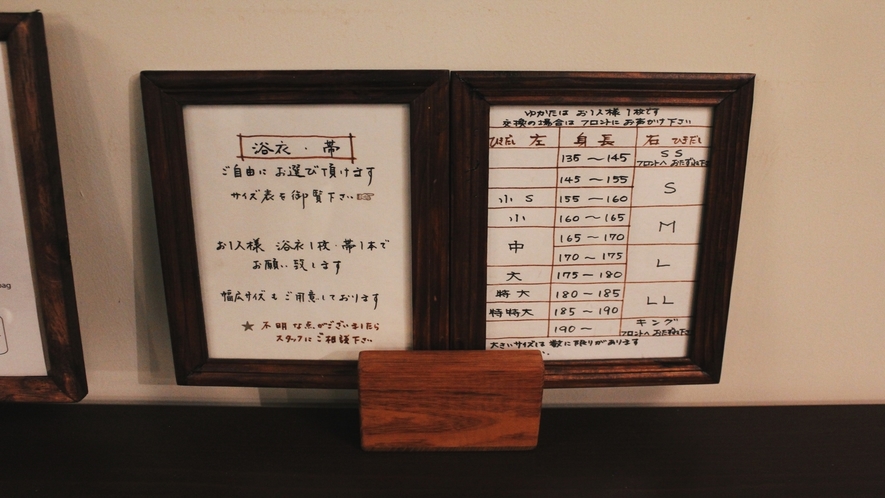 浴衣・帯
ご自由に お選び頂けます
サイズ表を御覧下さい☞
お1人様 浴衣1枚・帯1本で
お願い致します
幅広サイズもご用意しております
★ 不明な点がございましたら
スタッフにご相談下さい
ゆかたは お1人様 1枚です
交換の場合は フロントにお声がけ下さい
ひきだし 左 身長 右 ひきだし
135〜145 SS
フロントへ
145〜155 S
小S 155〜160
小 160〜165 M
中 165〜170
170〜175 L
大 175〜180
特大 180〜185 LL
特特大 185〜190
190〜 キング
フロントへ
大きいサイズは 数に限りがあります
bag